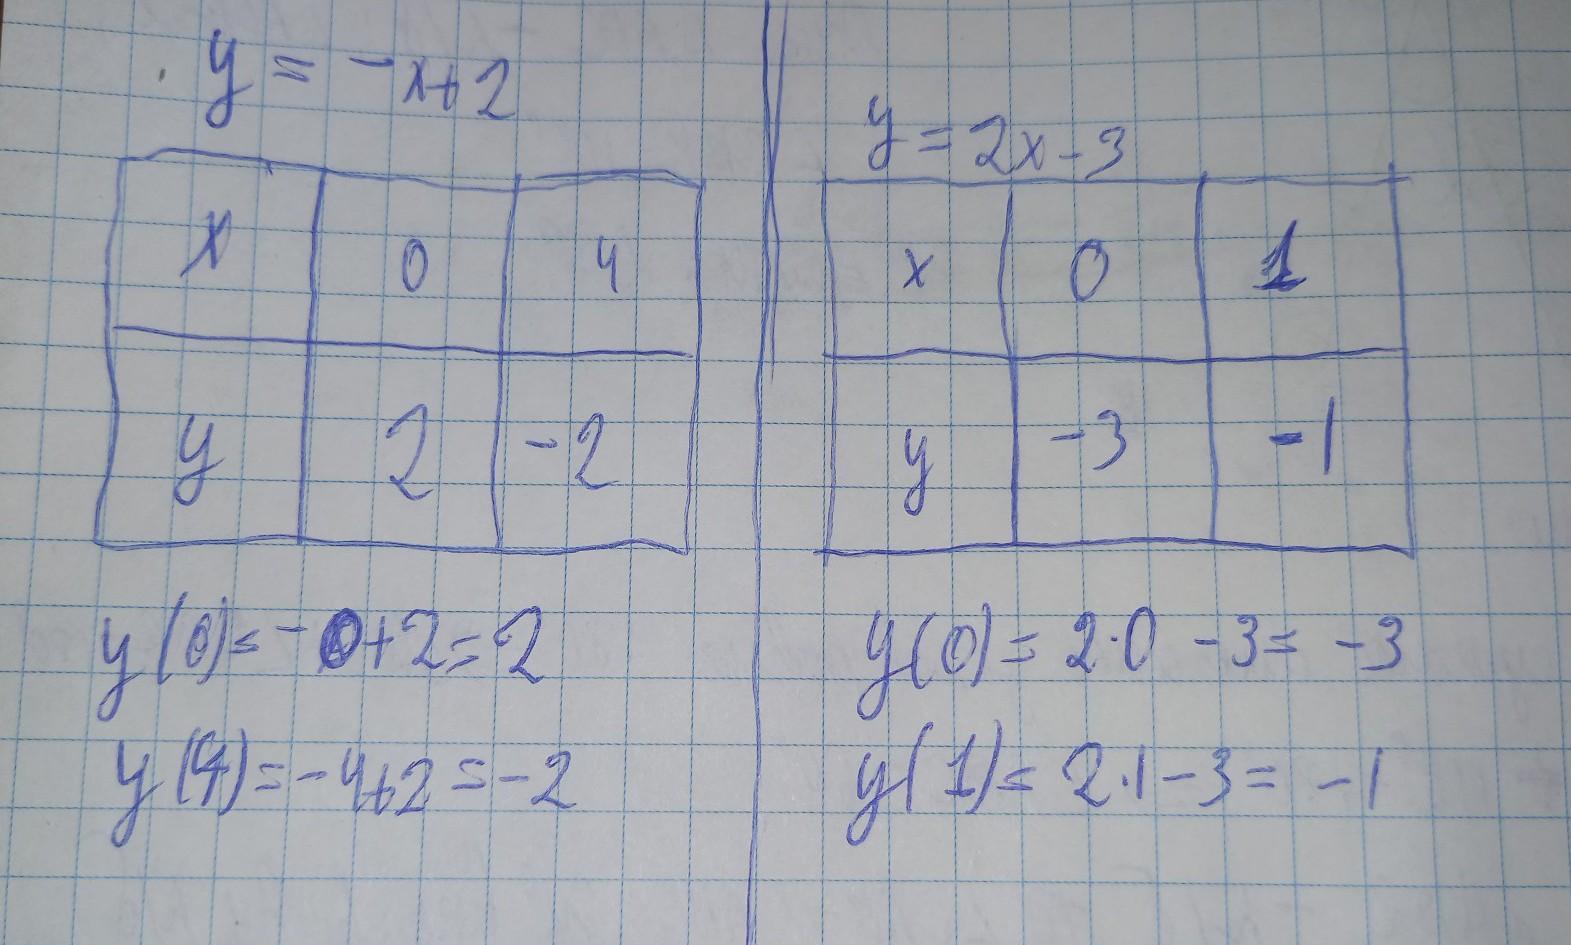 y = -x+2
x 0 4
y 2 -2
y(0)= -0+2=2
y(4)=-4+2=-2
y=2x-3
x 0 1
y -3 -1
y(0)= 2·0 -3= -3
y(1)= 2·1-3= -1